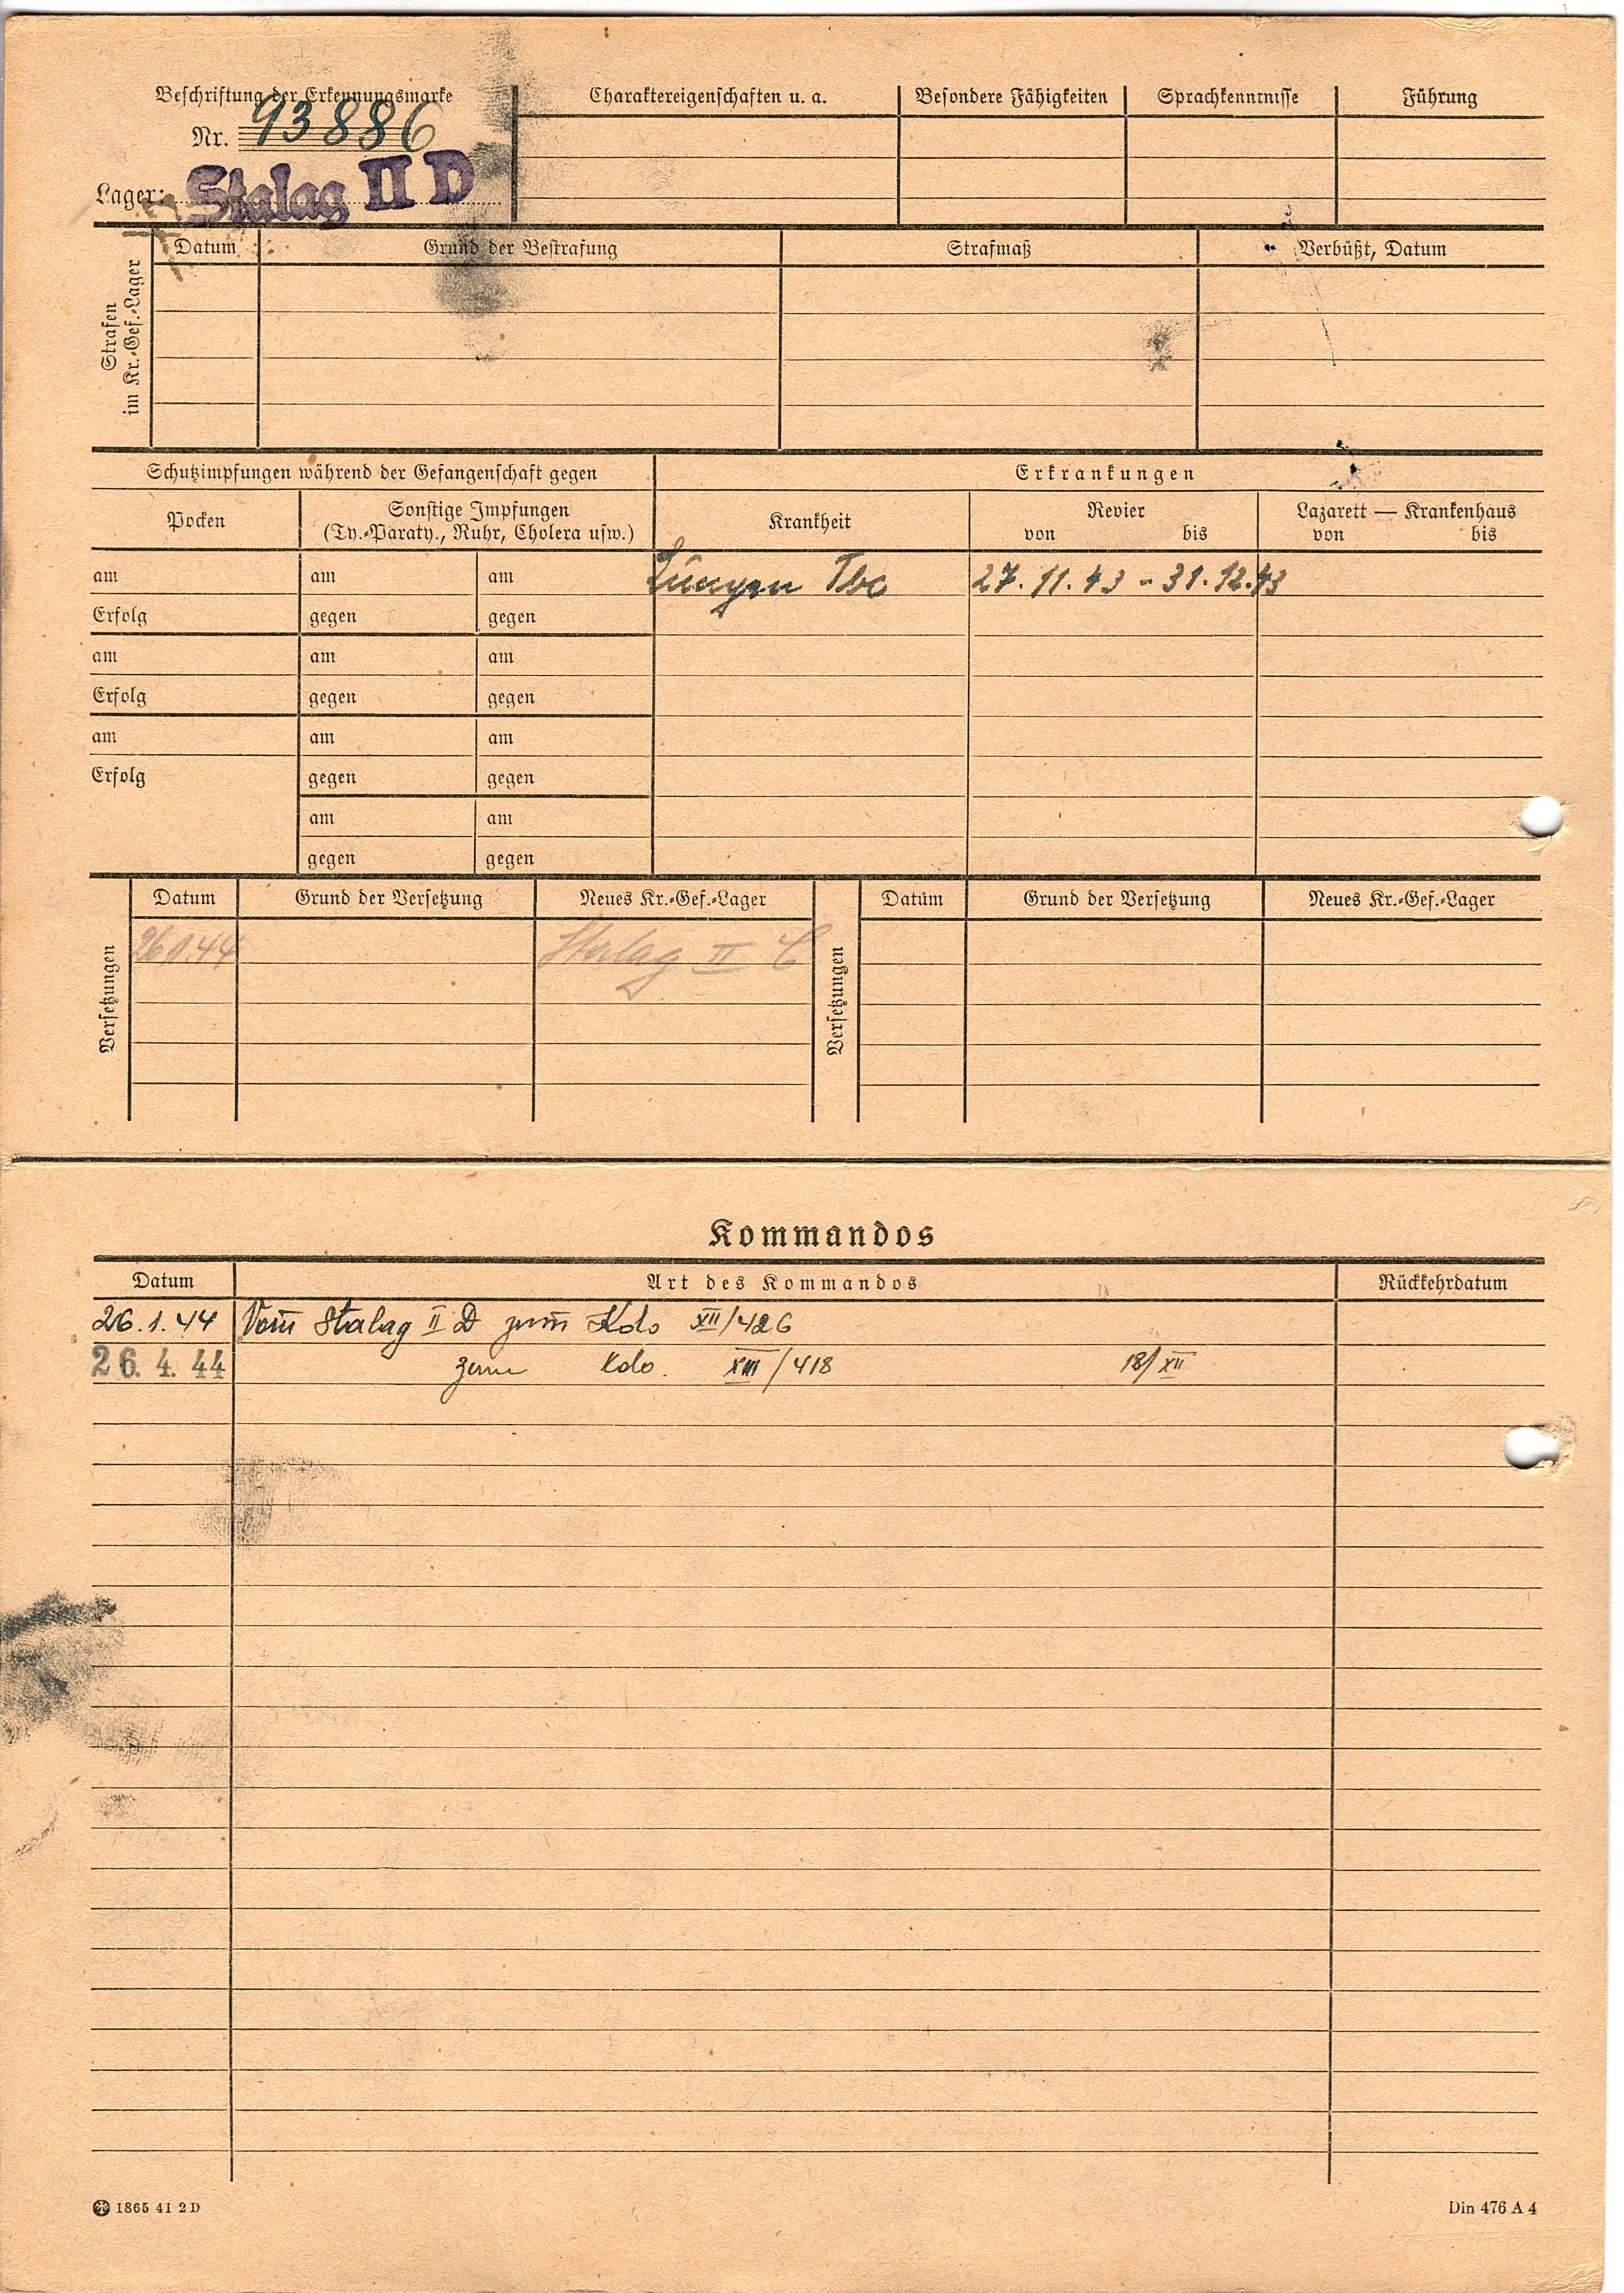 Beschriftung der Erkennungsmarke
Nr. 93886
Lager: Stalag II D
Charaktereigenschaften u. a.
Besondere Fähigkeiten
Sprachkenntnisse
Führung
Strafen im Kr.-Gef.-Lager
Datum
Grund der Bestrafung
Strafmaß
Verbüßt, Datum
Schutzimpfungen während der Gefangenschaft gegen
Erkrankungen
Pocken
Sonstige Impfungen
(Ty.-Paraty., Ruhr, Cholera usw.)
Krankheit
Revier
von bis
Lazarett — Krankenhaus
von bis
am am am Lungen Tbc 27.11.43 - 31.12.43
Erfolg gegen gegen
am am am
Erfolg gegen gegen
am am am
Erfolg gegen gegen
am am
gegen gegen
Versetzungen
Datum Grund der Versetzung Neues Kr.-Gef.-Lager
26.1.44 Stalag II C
Versetzungen
Datum Grund der Versetzung Neues Kr.-Gef.-Lager
Kommandos
Datum Art des Kommandos Rückkehrdatum
26.1.44 Vom Stalag II D zum Kdo XII/426
26. 4. 44 zum Kdo. XIII/418 18/XII
1865 41 2 D
Din 476 A 4